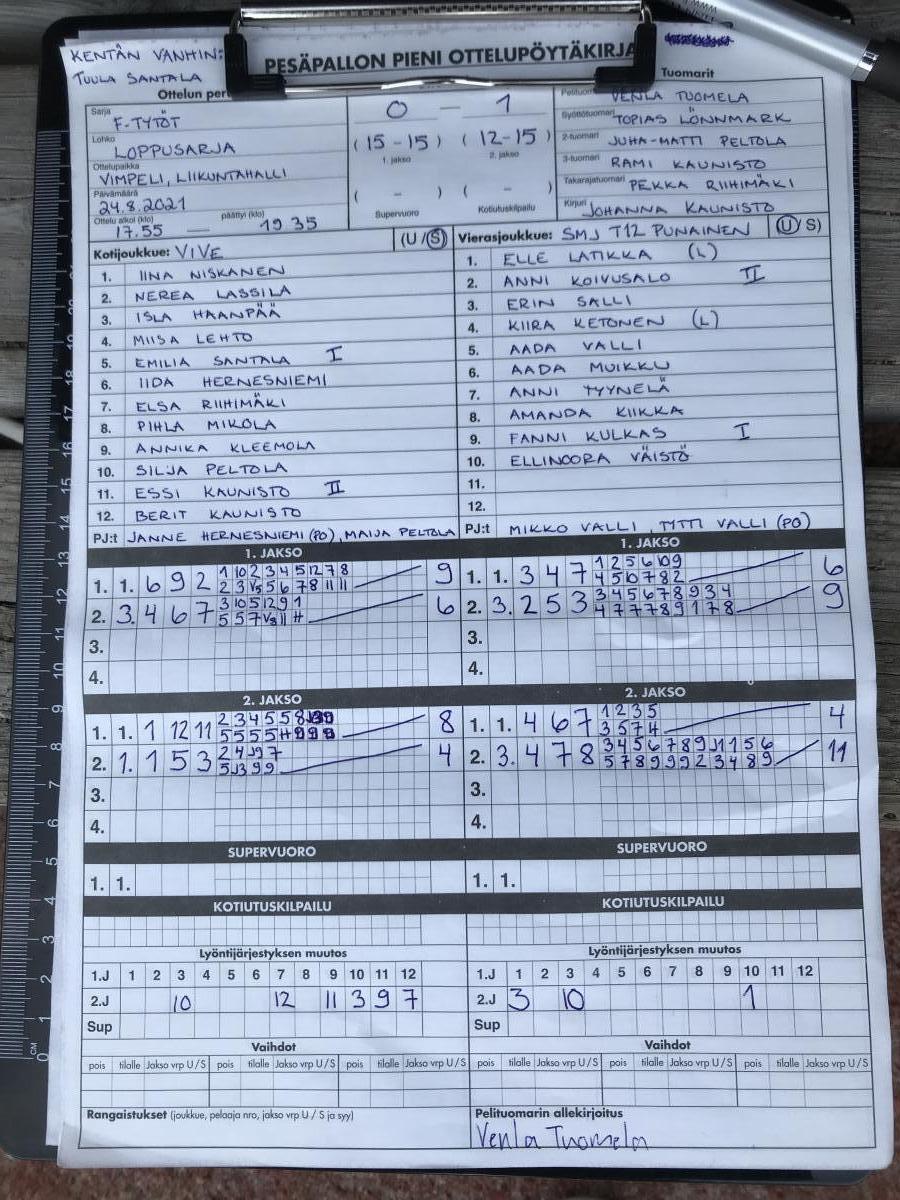 KENTÄN VANHIN:
TUULA SANTALA
PESÄPALLON PIENI OTTELUPÖYTÄKIRJA
Ottelun
Tuomarit
Sarja
F-TYTÖT
Lohko
LOPPUSARJA
Ottelupaikka
VIMPELI, LIIKUNTAHALLI
Päivämäärä
24.8.2021
Ottelu alkoi (klo) päättyi (klo)
17.55 — 19 35
0 — 1
(15-15) (12-15)
1. jakso 2. jakso
( - ) ( - )
Supervuoro Kotiutuskilpailu
VENLA TUOMELA
Syöttötuomari TOPIAS LÖNNMARK
2-tuomari JUHA-MATTI PELTOLA
3-tuomari RAMI KAUNISTO
Takarajatuomari PEKKA RIIHIMÄKI
Kirjuri JOHANNA KAUNISTO
Kotijoukkue: VIVE (U/S)
1. IINA NISKANEN
2. NEREA LASSILA
3. ISLA HAANPÄÄ
4. MIISA LEHTO
5. EMILIA SANTALA I
6. IIDA HERNESNIEMI
7. ELSA RIIHIMÄKI
8. PIHLA MIKOLA
9. ANNIKA KLEEMOLA
10. SILJA PELTOLA
11. ESSI KAUNISTO II
12. BERIT KAUNISTO
PJ:t JANNE HERNESNIEMI (PO), MAIJA PELTOLA
Vierasjoukkue: SMJ T12 PUNAINEN (U/S)
1. ELLE LATIKKA (L)
2. ANNI KOIVUSALO II
3. ERIN SALLI
4. KIIRA KETONEN (L)
5. AADA VALLI
6. AADA MUIKKU
7. ANNI TYYNELÄ
8. AMANDA KIIKKA
9. FANNI KULKAS I
10. ELLINOORA VÄISTÖ
11.
12.
PJ:t MIKKO VALLI, TYTTI VALLI (PO)
1. JAKSO
1. 1. 6 9 2 1 10 2 3 4 5 12 7 8 9
2 3 VS 5 6 7 8 11 11
2. 3. 4 6 7 3 10 5 12 9 1 6
5 5 7 VS 11 H
3.
4.
1. JAKSO
1. 1. 3 4 7 1 2 5 6 10 9 6
4 5 10 7 8 2
2. 3. 2 5 3 3 4 5 6 7 8 9 3 4 9
4 7 7 7 8 9 1 7 8
3.
4.
2. JAKSO
1. 1. 1 12 11 2 3 4 5 5 8 8
5 5 5 5 H 9 9 9
2. 1. 1 5 3 2 4 J9 7 4
5 J3 9 9
3.
4.
2. JAKSO
1. 1. 4 6 7 1 2 3 5 4
3 5 7 H
2. 3. 4 7 8 3 4 5 6 7 8 9 J1 1 5 6 11
5 7 8 9 9 9 2 3 4 8 9
3.
4.
SUPERVUORO
1. 1.
SUPERVUORO
1. 1.
KOTIUTUSKILPAILU
KOTIUTUSKILPAILU
Lyöntijärjestyksen muutos
1.J 1 2 3 4 5 6 7 8 9 10 11 12
2.J 10 12 11 3 9 7
Sup
Lyöntijärjestyksen muutos
1.J 1 2 3 4 5 6 7 8 9 10 11 12
2.J 3 10 1
Sup
Vaihdot
pois tilalle Jakso vrp U/S pois tilalle Jakso vrp U/S pois tilalle Jakso vrp U/S
Vaihdot
pois tilalle Jakso vrp U/S pois tilalle Jakso vrp U/S pois tilalle Jakso vrp U/S
Rangaistukset (joukkue, pelaaja nro, jakso vrp U / S ja syy)
Pelituomarin allekirjoitus
Venla Tuomela
CM 0 1 2 3 4 5 6 7 8 9 10 11 12 13 14 15 16 17 18 19 20